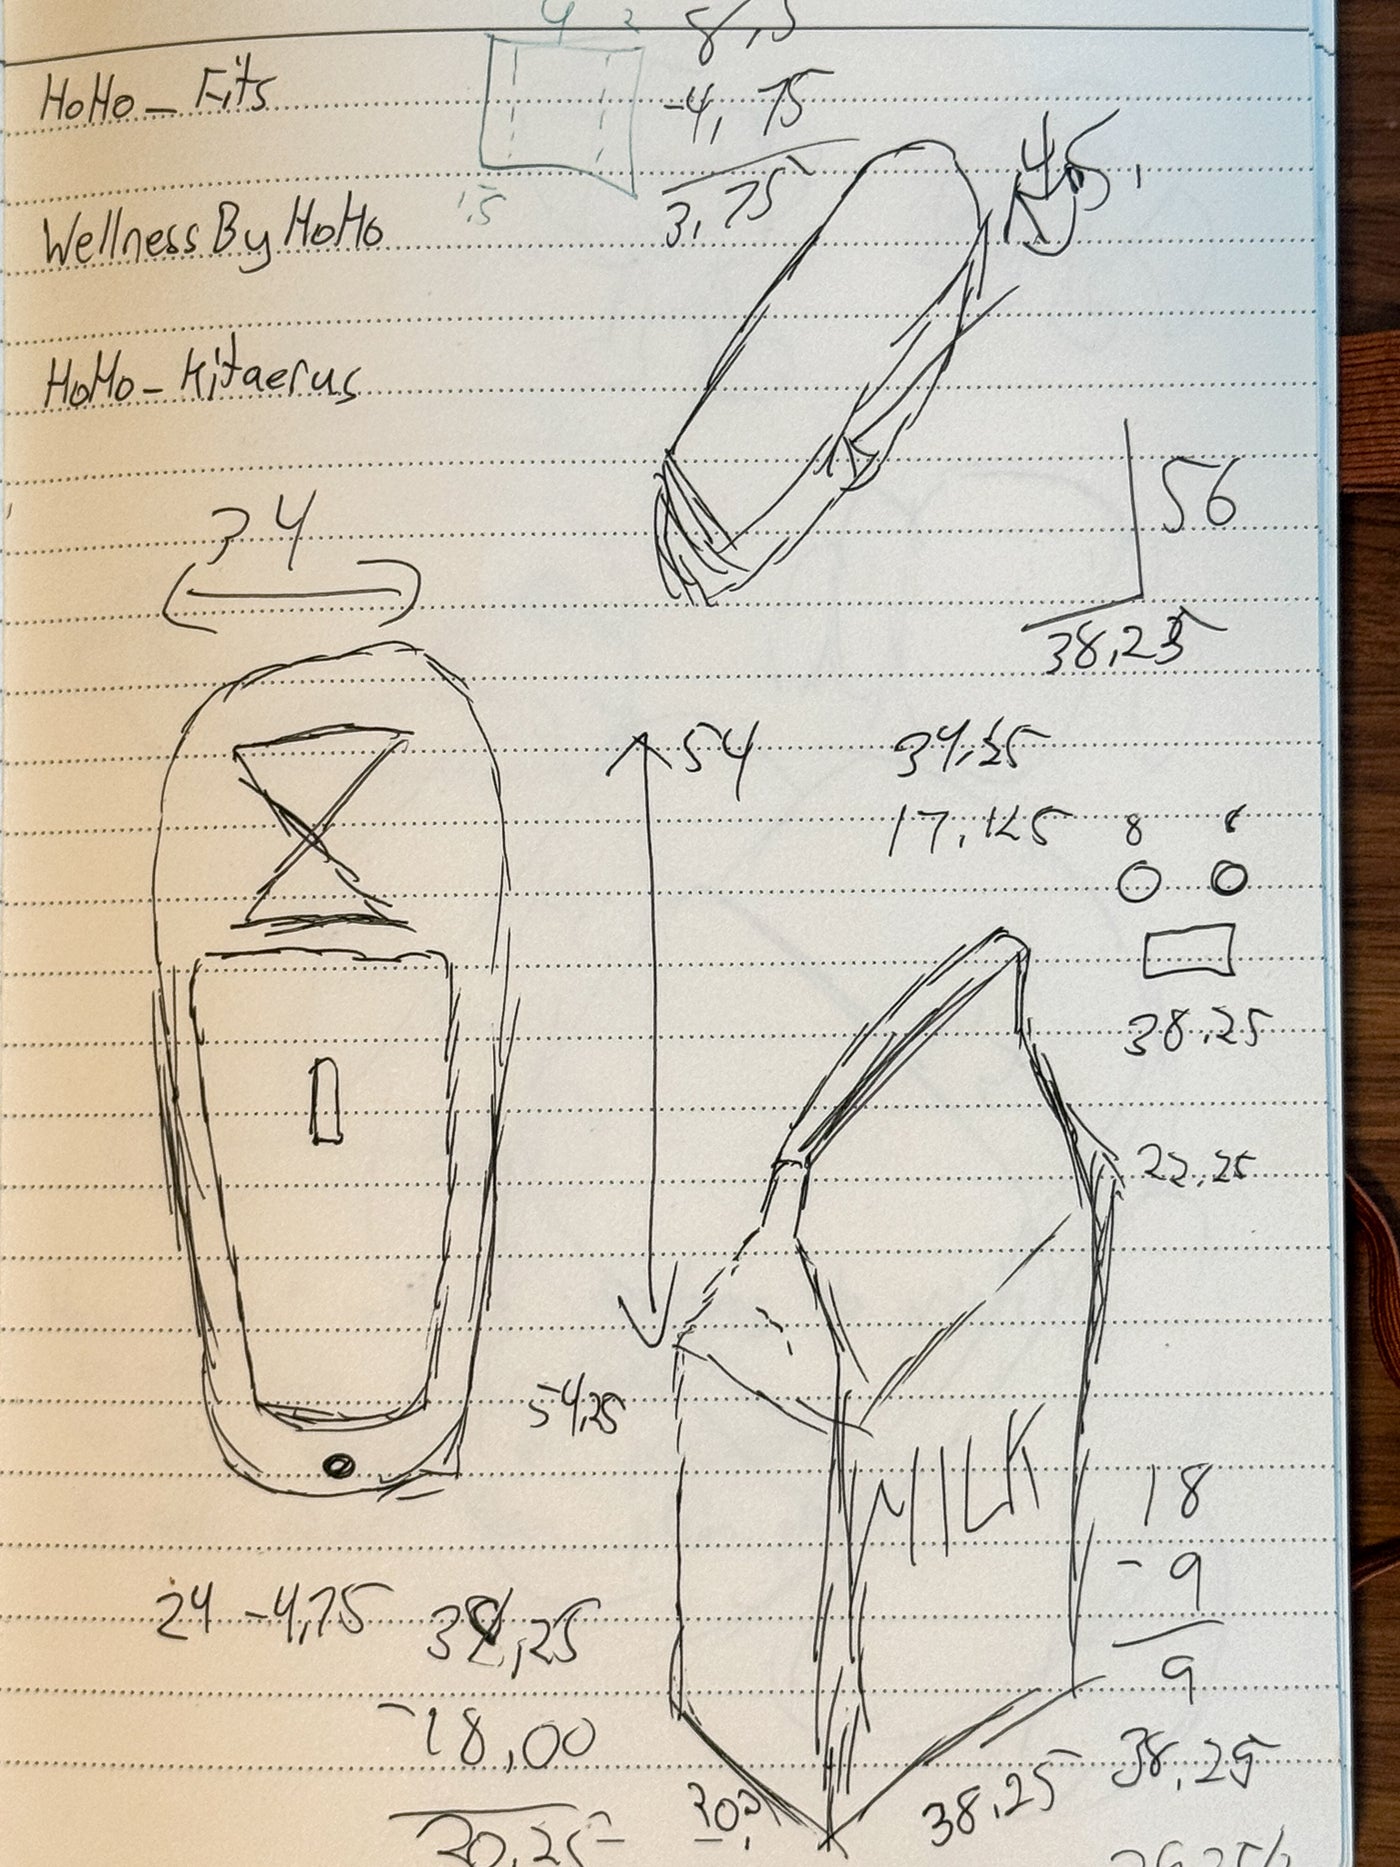 4 2
8,5
HoHo - Fits
-4,75
1,5
3,75
45,
Wellness By HoHo
HoHo - Kitaerus
34
56
38,25
54
34,25
17,125
8
38,25
22,25
54,25
MILK
18
- 9
9
24 -4,75
38,25
-18,00
20,25
20?
38,25
38,25